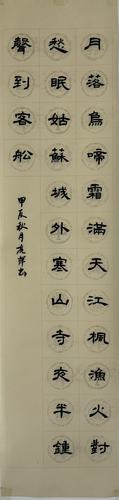 月落烏啼霜滿天江楓漁火對
愁眠姑蘇城外寒山寺夜半鍾
聲到客船
甲辰秋月